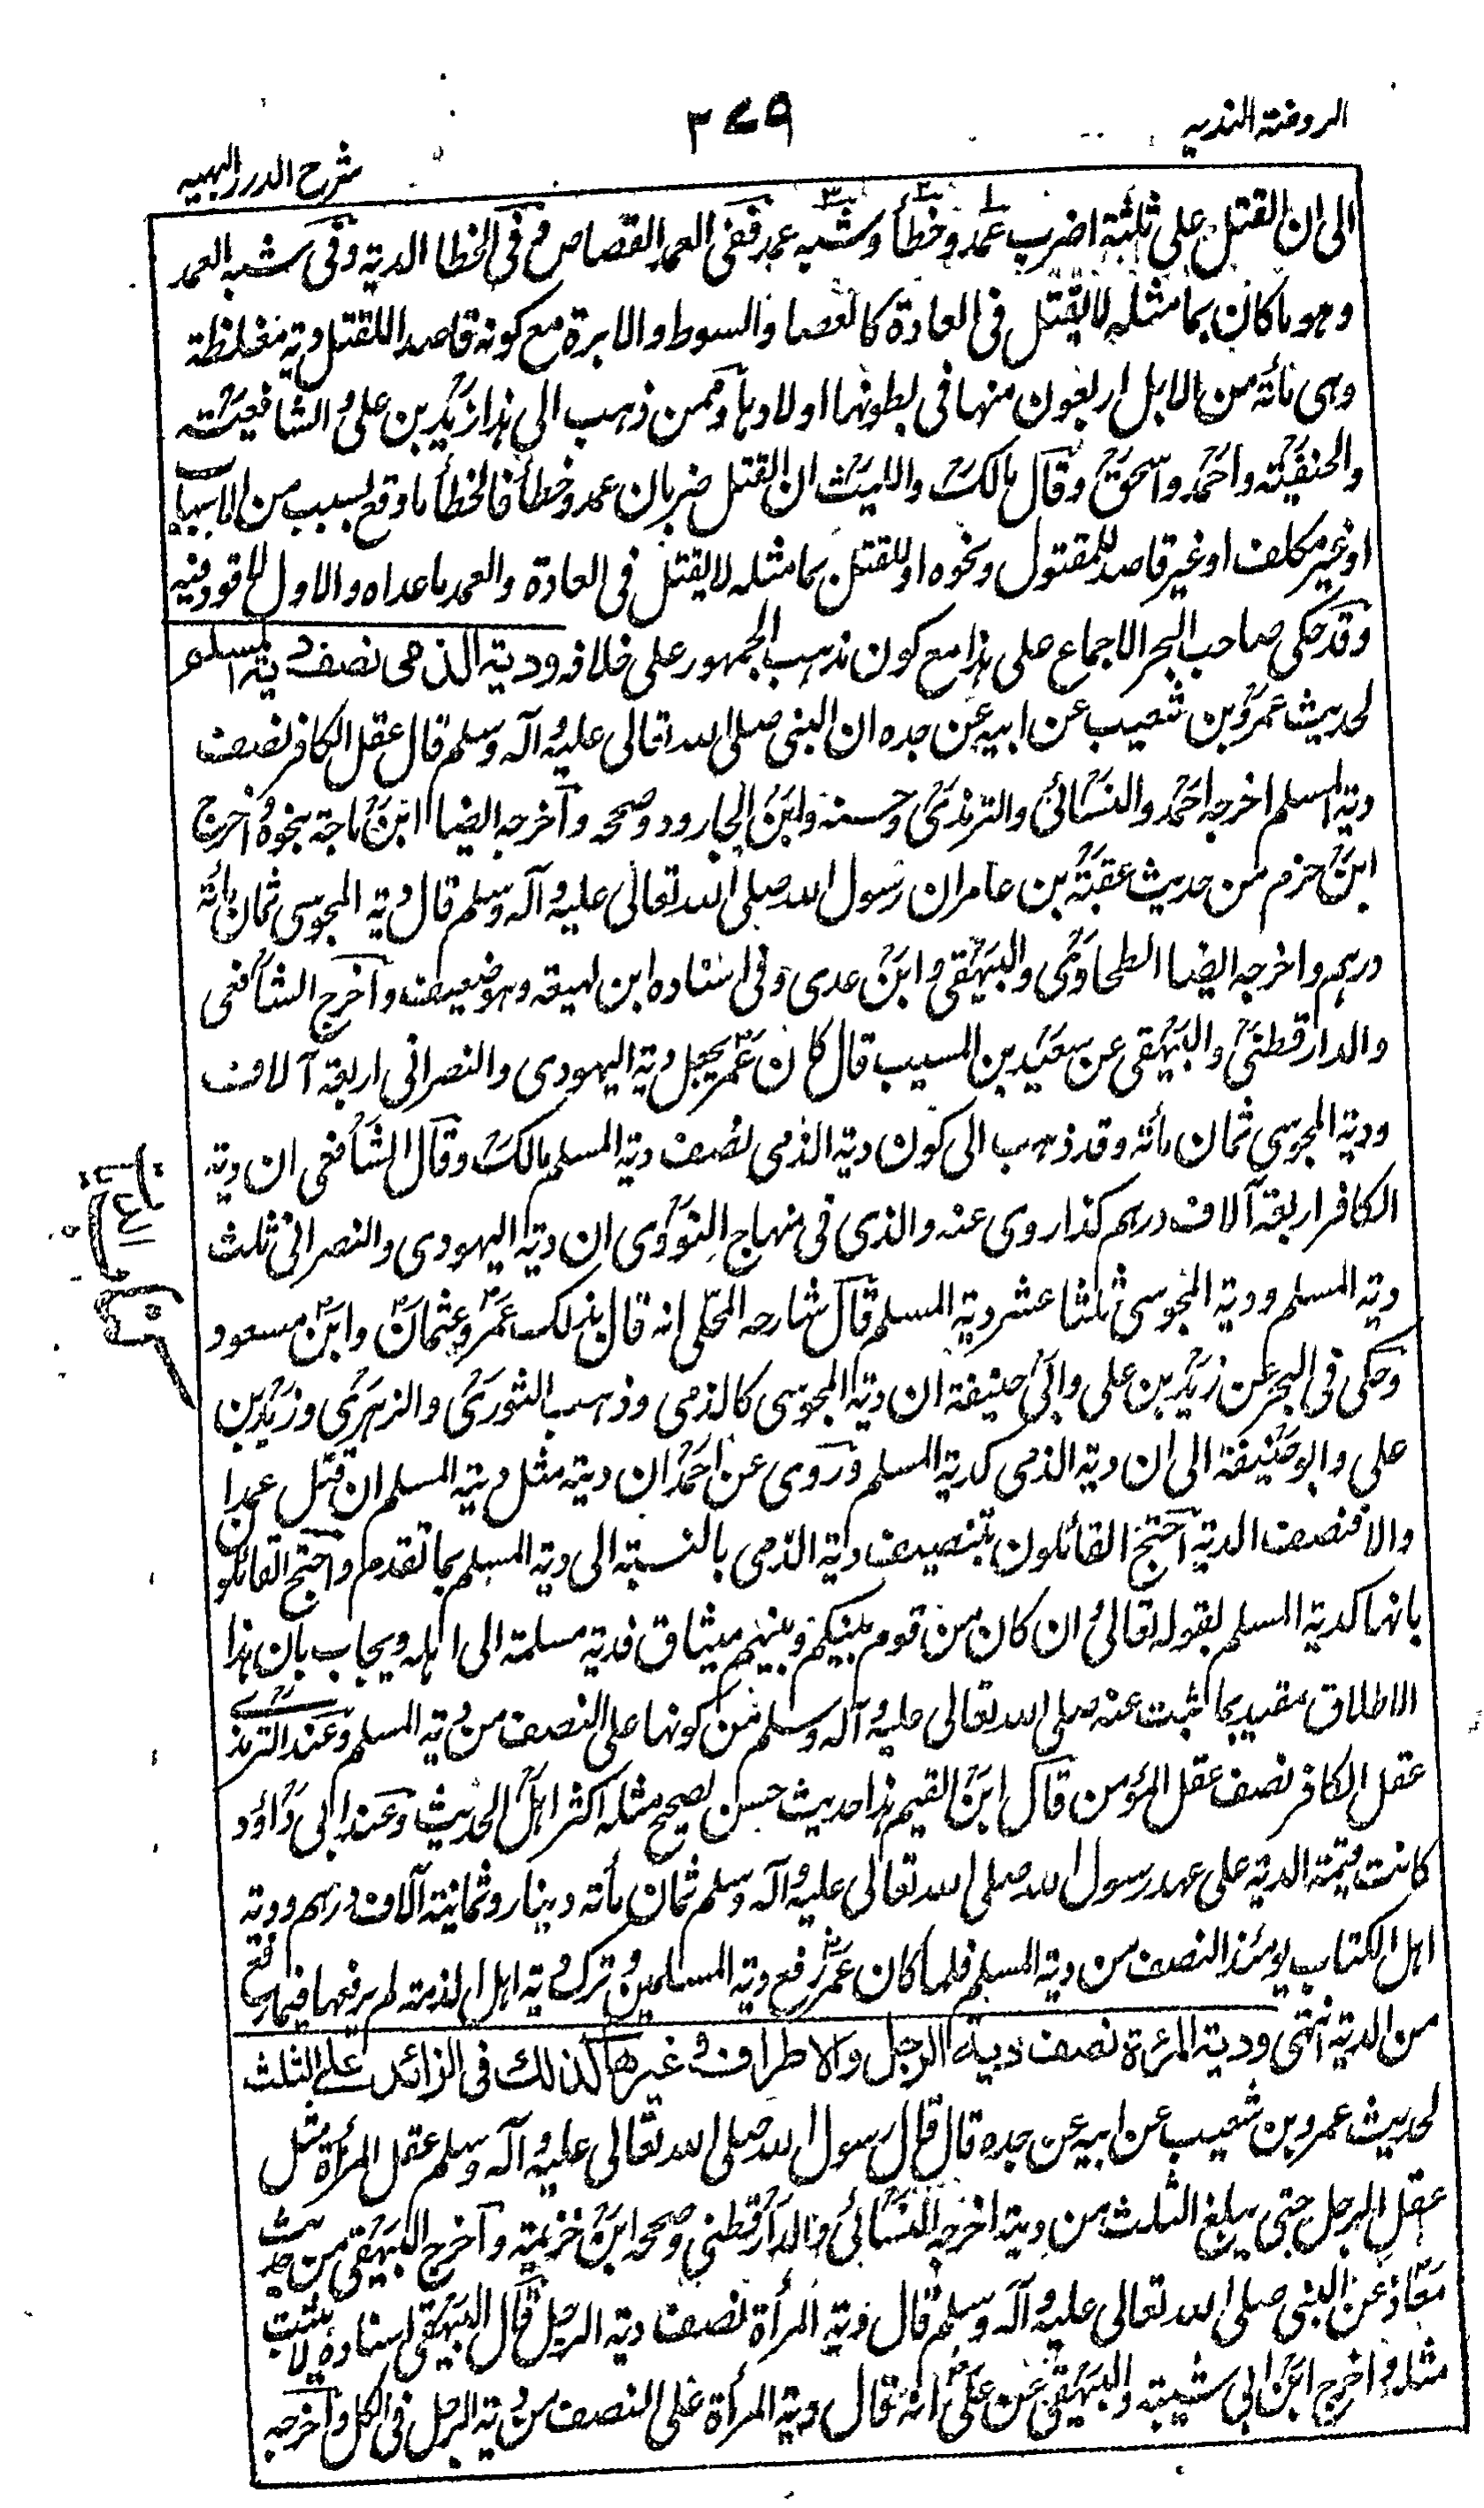 الروضة الندیه
٣٧٩
شرح الدرر البهیه
الی ان القتل علی ثلثة اضرب عمد وخطأ وشبه عمد ففی العمد القصاص وفی الخطا الدیة وفی شبه العمد
وهو ما کان بما مثله لا یقتل فی العادة کالعصا والسوط والابرة مع کونه قاصدا للقتل دیة مغلظة
وهی مائة من الابل اربعون منها فی بطونها اولادها وممن ذهب الی هذا زید بن علی والشافعیة
والحنفیة واحمد واسحق وقال مالک واللیث ان القتل ضربان عمد وخطأ فالخطأ ما وقع بسبب من الاسباب
او غیر مکلف او غیر قاصد للمقتول ونحوه او للقتل بما مثله لا یقتل فی العادة والعمد ما عداه والاول لا قود فیه
وقد حکی صاحب البحر الاجماع علی هذا مع کون مذهب الجمهور علی خلافه ودیة الذمی نصف دیة المسلم
لحدیث عمرو بن شعیب عن ابیه عن جده ان النبی صلی الله تعالی علیه وآله وسلم قال عقل الکافر نصف
دیة المسلم اخرجه احمد والنسائی والترمذی وحسنه وابن الجارود وصححه واخرجه ایضا ابن ماجة بنحوه واخرج
ابن حزم من حدیث عقبة بن عامر ان رسول الله صلی الله تعالی علیه وآله وسلم قال دیة المجوسی ثمان مائة
درهم واخرجه ایضا الطحاوی والبیهقی وابن عدی وفی اسناده ابن لهیعة وهو ضعیف واخرج الشافعی
والدارقطنی والبیهقی عن سعید بن المسیب قال کان عمر یجعل دیة الیهودی والنصرانی اربعة آلاف
ودیة المجوسی ثمان مائة وقد ذهب الی کون دیة الذمی نصف دیة المسلم مالک وقال الشافعی ان دیة
الکافر اربعة آلاف درهم کذا روی عنه والذی فی منهاج النووی ان دیة الیهودی والنصرانی ثلث
دیة المسلم ودیة المجوسی ثلثا عشر دیة المسلم قال شارحه المحلی انه قال بذلک عمر وعثمان وابن مسعود
وحکی فی البحر عن زید بن علی وابی حنیفة ان دیة المجوسی کالذمی وذهب الثوری والزهری وزید بن
علی وابو حنیفة الی ان دیة الذمی کدیة المسلم وروی عن احمد ان دیته مثل دیة المسلم ان قتل عمدا
والا فنصف الدیة احتج القائلون بتنصیف دیة الذمی بالنسبة الی دیة المسلم بما تقدم واحتج القائلون
بانها کدیة المسلم بقوله تعالی وان کان من قوم بینکم وبینهم میثاق فدیة مسلمة الی اهله ویجاب بان هذا
الاطلاق مقید بما ثبت عنه صلی الله تعالی علیه وآله وسلم من کونها علی النصف من دیة المسلم وعند الترمذی
عقل الکافر نصف عقل المؤمن قال ابن القیم هذا حدیث حسن یصحح مثله اکثر اهل الحدیث وعند ابی داؤد
کانت قیمة الدیة علی عهد رسول الله صلی الله تعالی علیه وآله وسلم ثمان مائة دینار وثمانیة آلاف درهم ودیة
اهل الکتاب یومئذ النصف من دیة المسلم فلما کان عمر رفع دیة المسلمین وترک دیة اهل الذمة لم یرفعها فیما رفع
من الدیة انتهی ودیة المرءة نصف دیة الرجل والاطراف وغیرها کذلك فی الزائد علی الثلث
لحدیث عمرو بن شعیب عن ابیه عن جده قال قال رسول الله صلی الله تعالی علیه وآله وسلم عقل المرأة مثل
عقل الرجل حتی یبلغ الثلث من دیته اخرجه النسائی والدارقطنی وصححه ابن خزیمة واخرج البیهقی من حدیث
معاذ عن النبی صلی الله تعالی علیه وآله وسلم قال دیة المرأة نصف دیة الرجل قال البیهقی اسناده لا یثبت
مثله واخرج ابن ابی شیبة والبیهقی عن علی انه قال دیة المرأة علی النصف من دیة الرجل فی الکل واخرجه